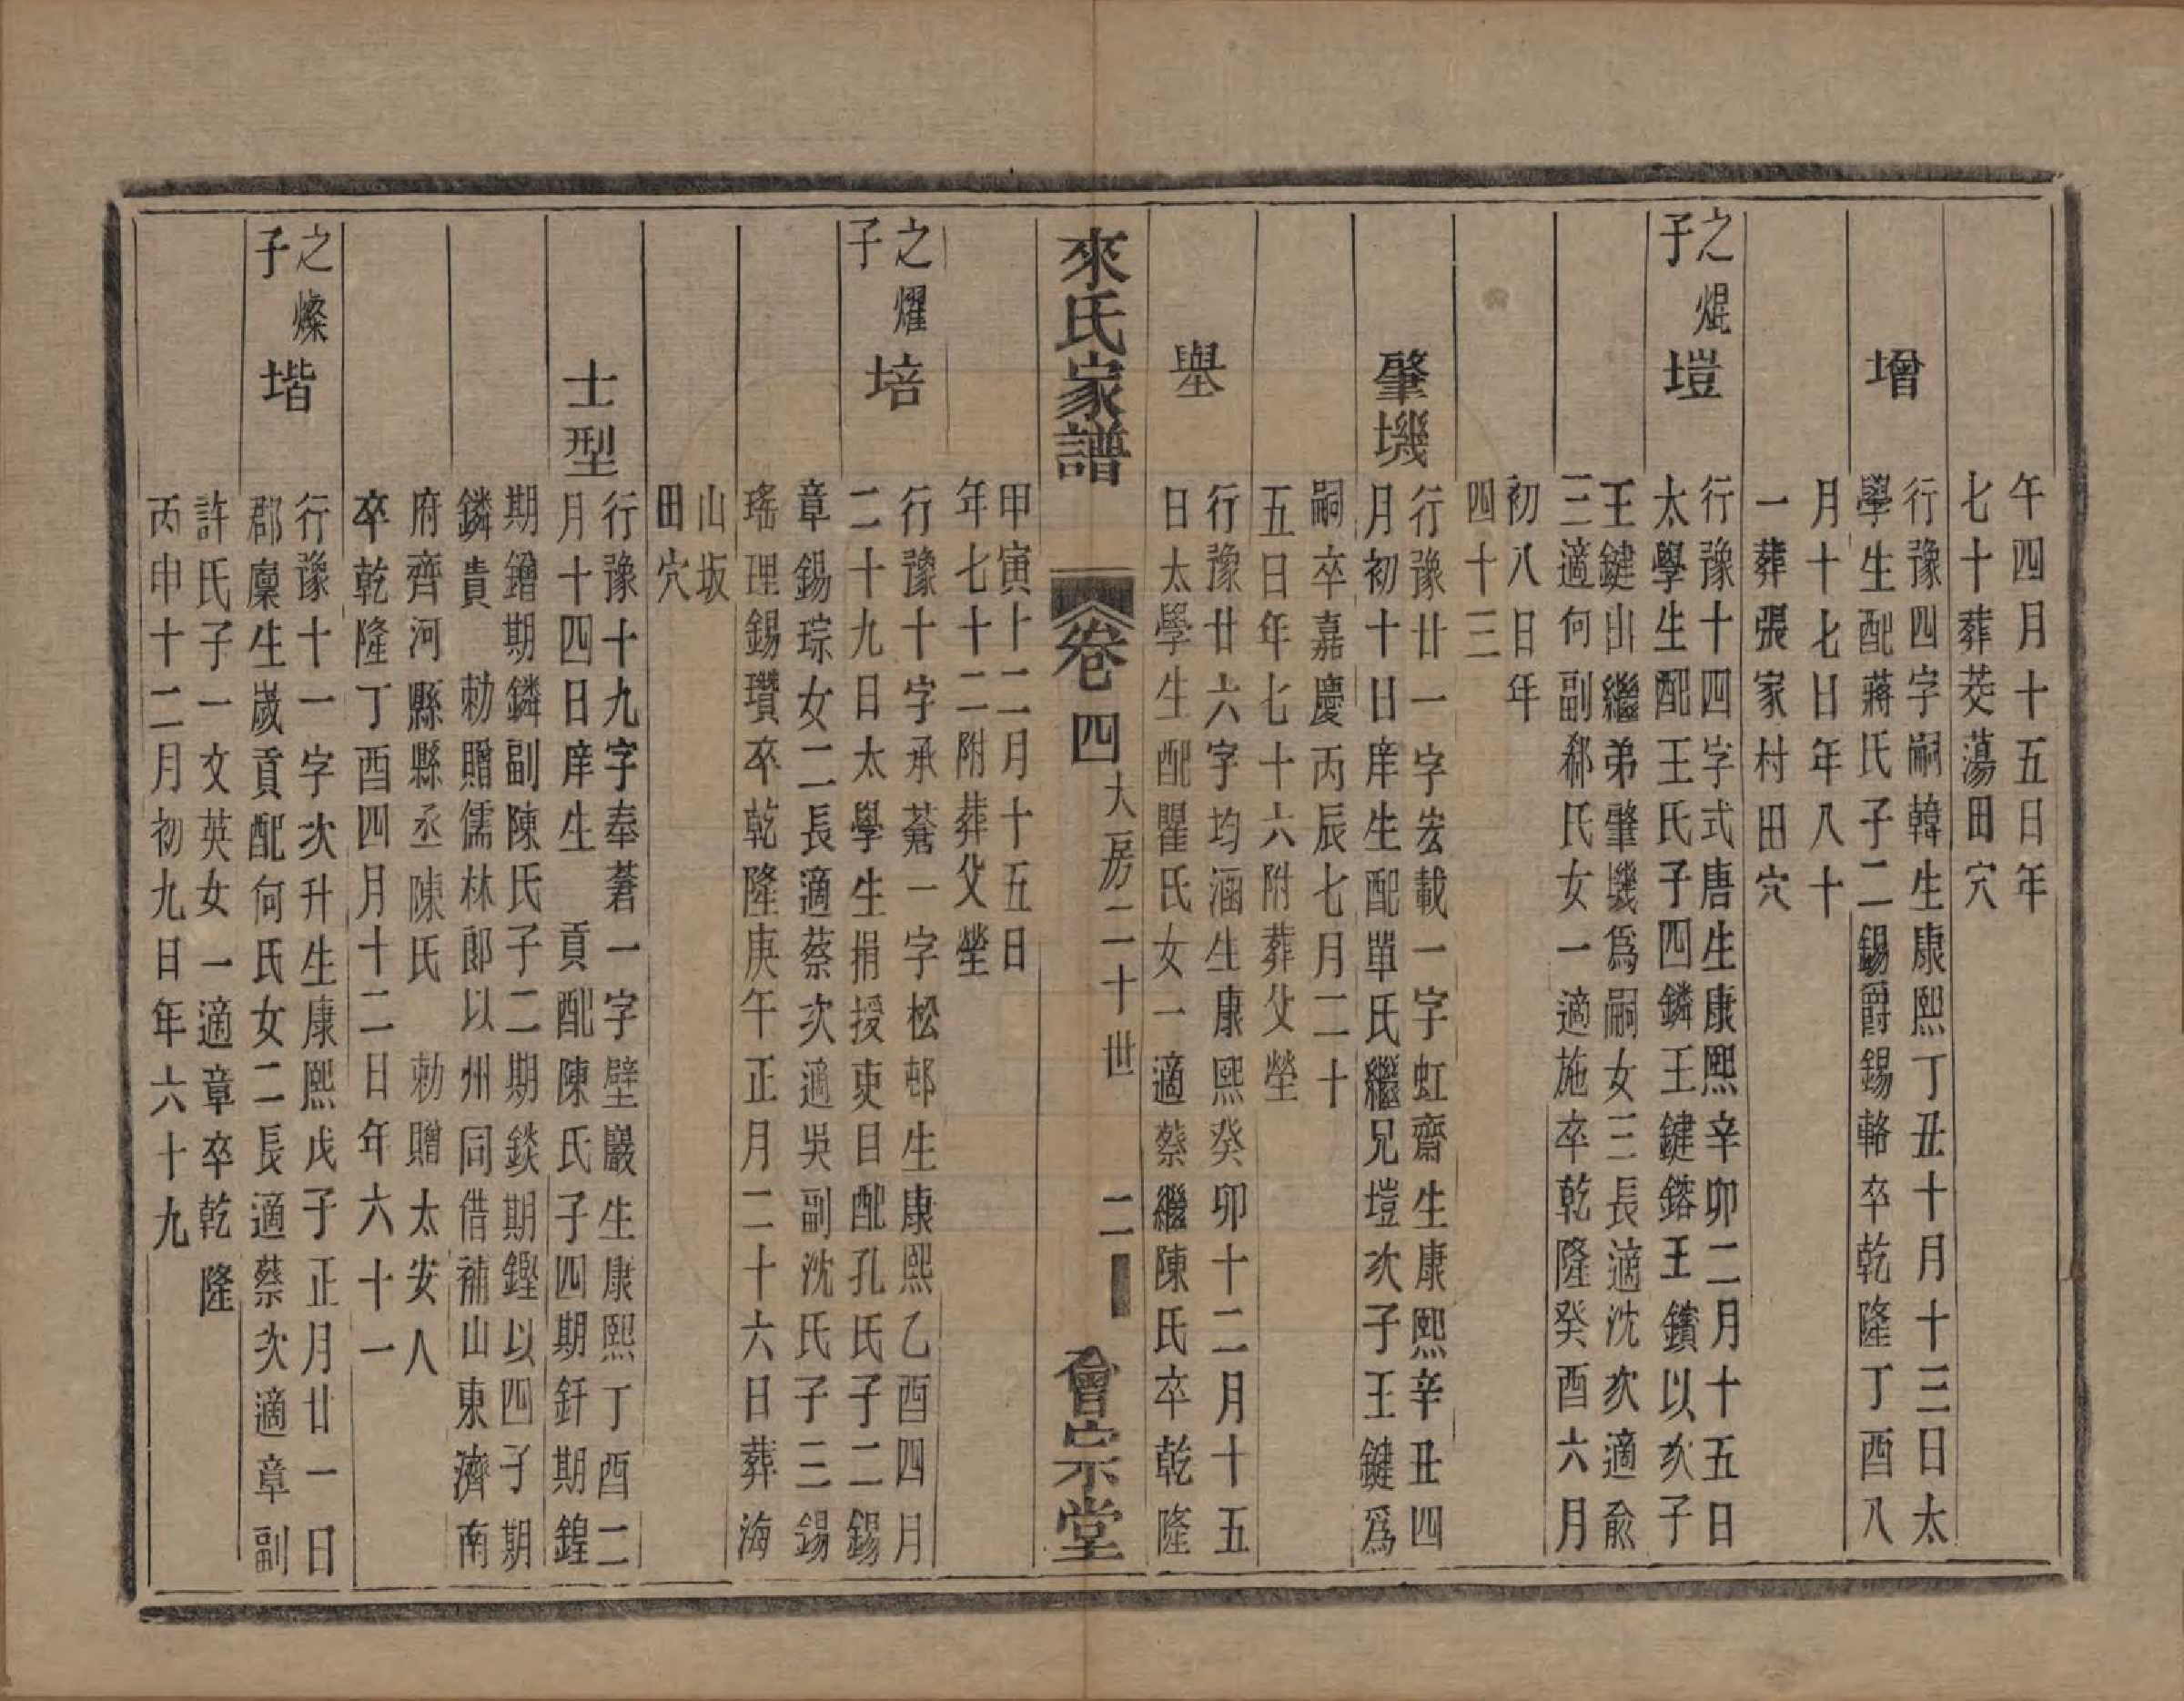 午四月十五日年
七十葬茭蕩田穴
增
行豫四字嗣韓生康熙丁丑十月十三日太
學生配蔣氏子二錫爵錫輅卒乾隆丁酉八
月十七日年八十
一葬張家村田穴
之焜
子
塏
行豫十四字式唐生康熙辛卯二月十五日
太學生配王氏子四鏻王鍵鎔王鑽以次子
王鍵出繼弟肇璣爲嗣女三長適沈次適兪
三適何副郝氏女一適施卒乾隆癸酉六月
初八日年
四十三
肇璣
行豫廿一字宏載一字虹齋生康熙辛丑四
月初十日庠生配單氏繼兄塏次子王鍵爲
嗣卒嘉慶丙辰七月二十
五日年七十六附葬父塋
壆
行豫廿六字均涵生康熙癸卯十二月十五
日太學生配瞿氏女一適蔡繼陳氏卒乾隆
來氏家譜
卷四
大房二十世
二
會宗堂
甲寅十二月十五日
年七十二附葬父塋
之燿
子
培
行豫十字承蒼一字松邨生康熙乙酉四月
二十九日太學生捐授吏目配孔氏子二錫
章錫琮女二長適蔡次適吳副沈氏子三錫
瑤理錫瓚卒乾隆庚午正月二十六日葬海
山坂
田穴
士型
行豫十九字奉蒼一字壁巖生康熙丁酉二
月十四日庠生 貢配陳氏子四期釬期鍠
期鏳期鏻副陳氏子二期錟期鏗以四子期
鏻貴 勅贈儒林郎以州同借補山東濟南
府齊河縣縣丞陳氏 勅贈太安人
卒乾隆丁酉四月十二日年六十一
之燦
子
堦
行豫十一字次升生康熙戊子正月廿一日
郡廩生嵗貢配何氏女二長適蔡次適章副
許氏子一文英女一適章卒乾隆
丙申十二月初九日年六十九